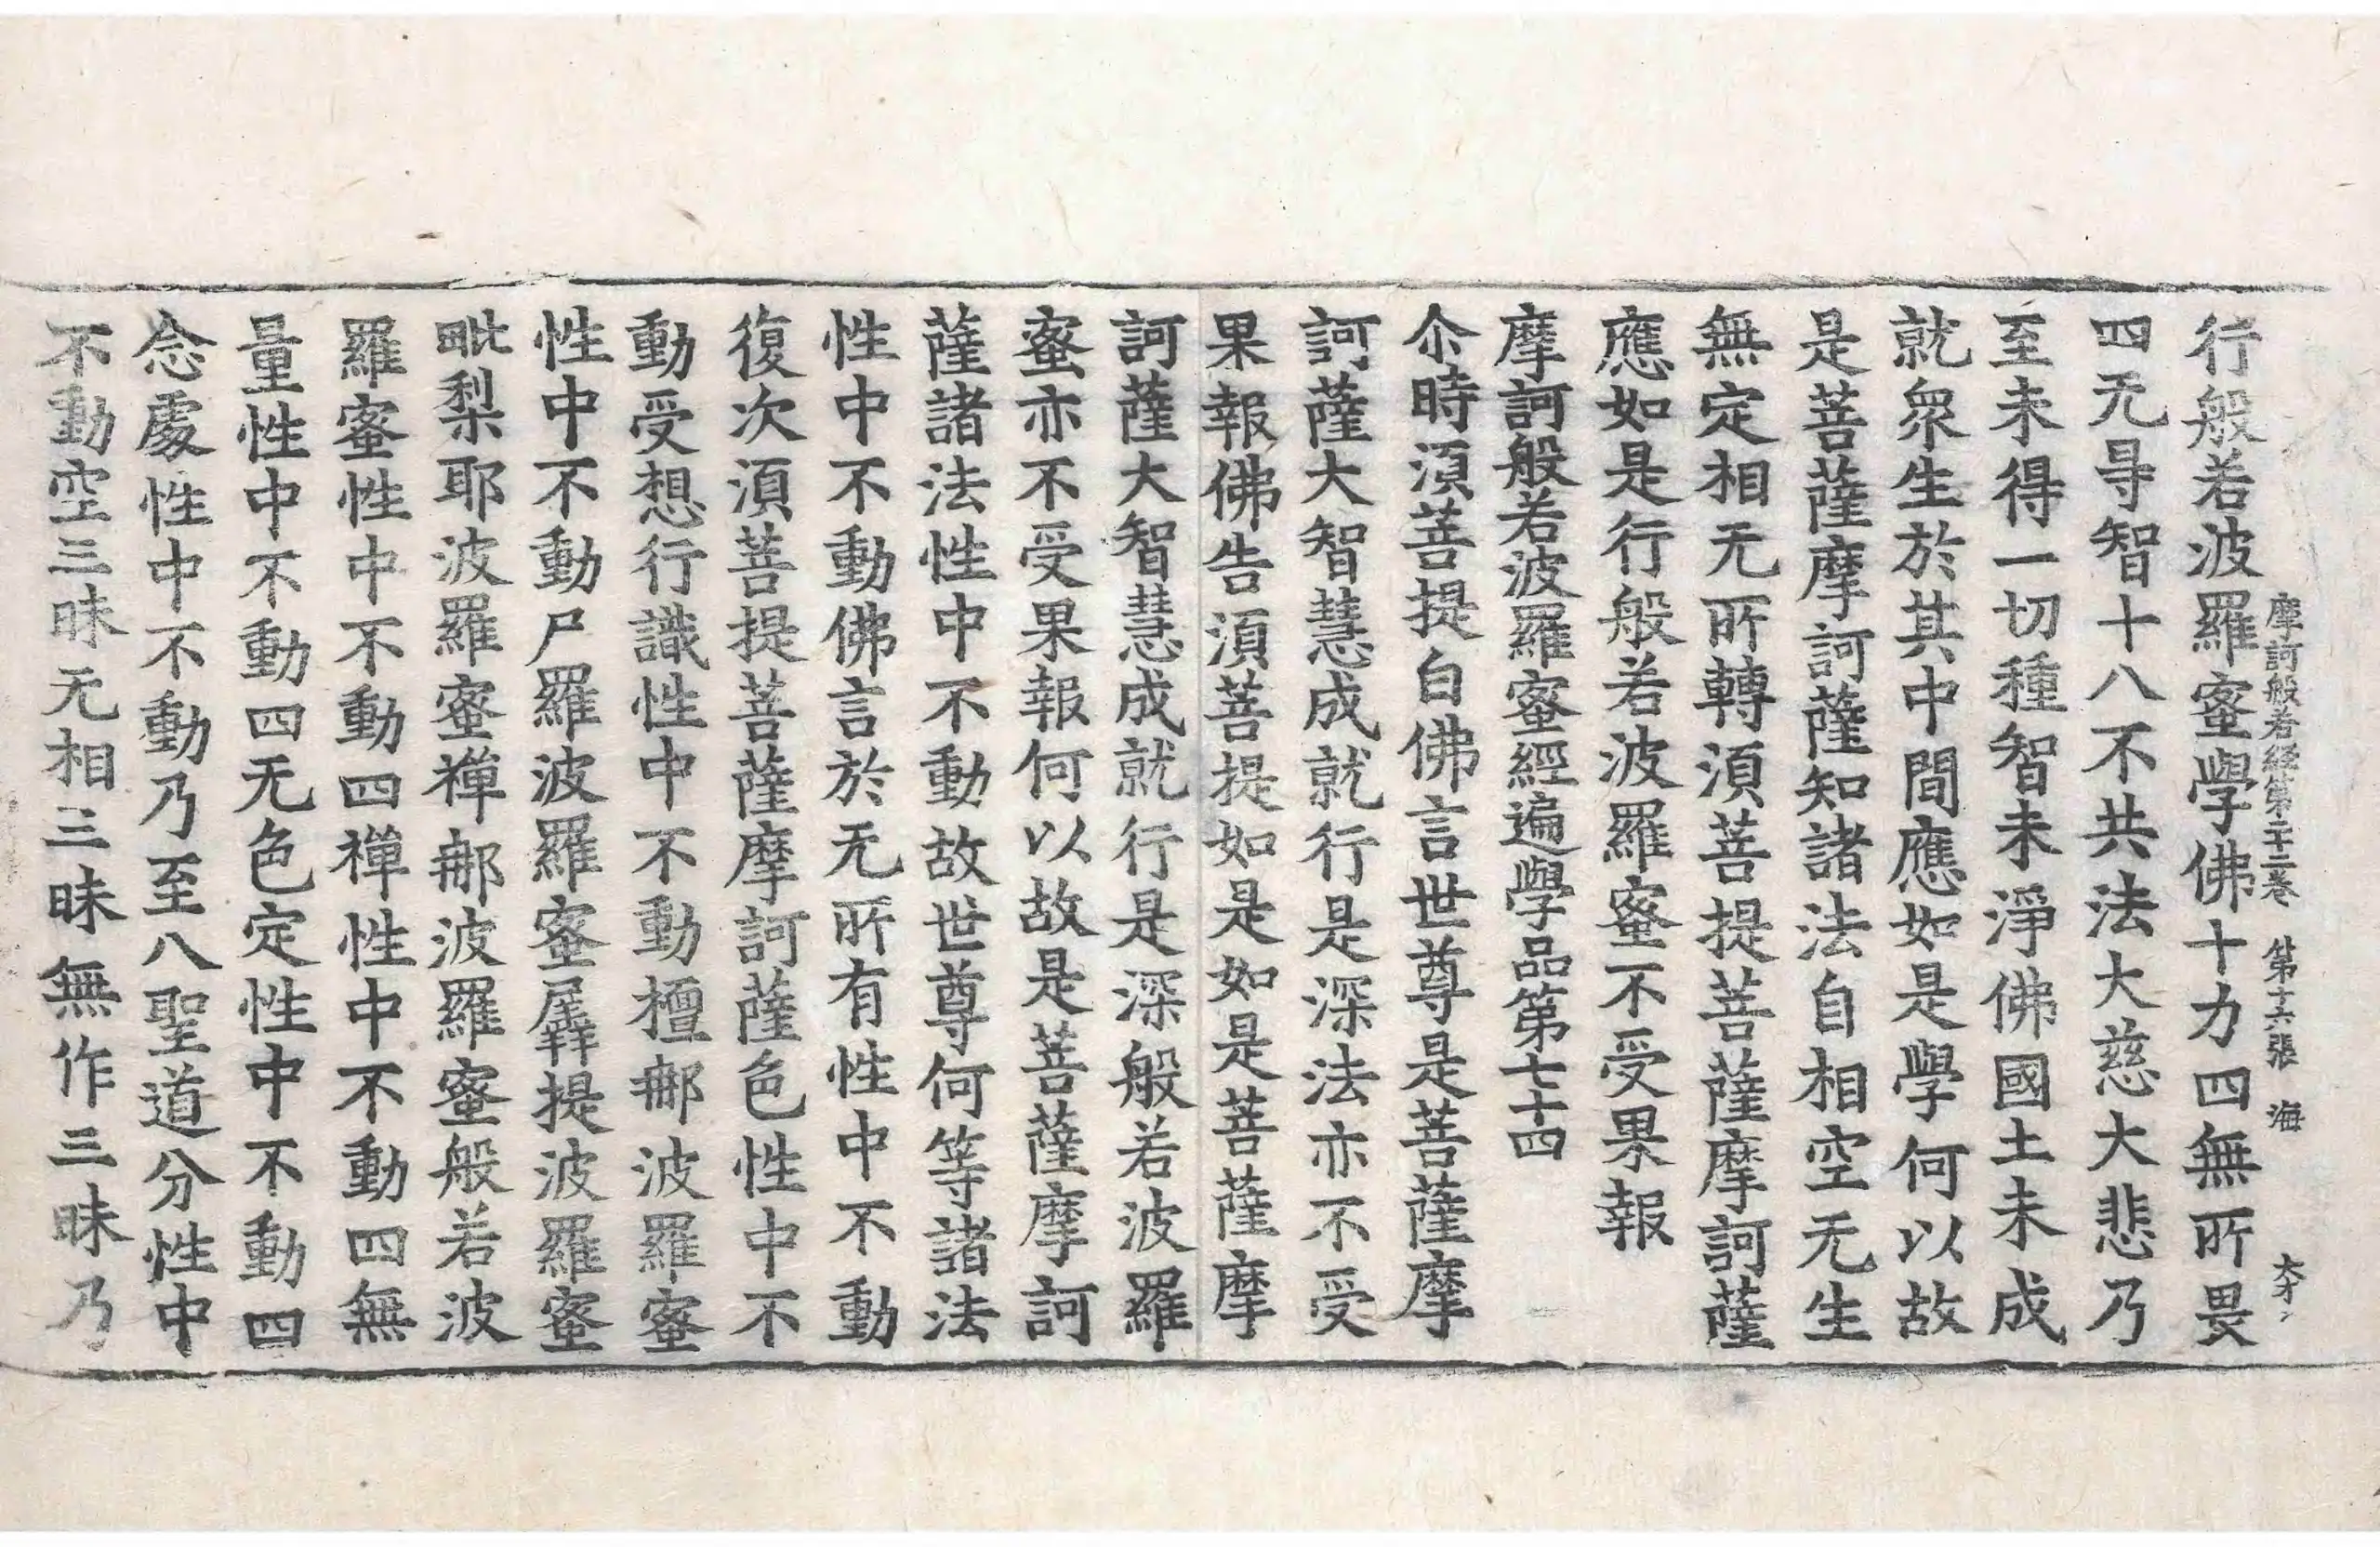 摩訶般若經第二十二卷 第十六張 海
行般若波羅蜜學佛十力四無所畏
四无㝵智十八不共法大慈大悲乃
至未得一切種智未淨佛國土未成
就衆生於其中間應如是學何以故
是菩薩摩訶薩知諸法自相空无生
無定相无所轉須菩提菩薩摩訶薩
應如是行般若波羅蜜不受果報
摩訶般若波羅蜜經遍學品第七十四
尒時須菩提白佛言世尊是菩薩摩
訶薩大智慧成就行是深法亦不受
果報佛告須菩提如是如是菩薩摩
訶薩大智慧成就行是深般若波羅
蜜亦不受果報何以故是菩薩摩訶
薩諸法性中不動故世尊何等諸法
性中不動佛言於无所有性中不動
復次須菩提菩薩摩訶薩色性中不
動受想行識性中不動檀那波羅蜜
性中不動尸羅波羅蜜羼提波羅蜜
毗梨耶波羅蜜禪那波羅蜜般若波
羅蜜性中不動四禪性中不動四無
量性中不動四无色定性中不動四
念處性中不動乃至八聖道分性中
不動空三昧无相三昧無作三昧乃